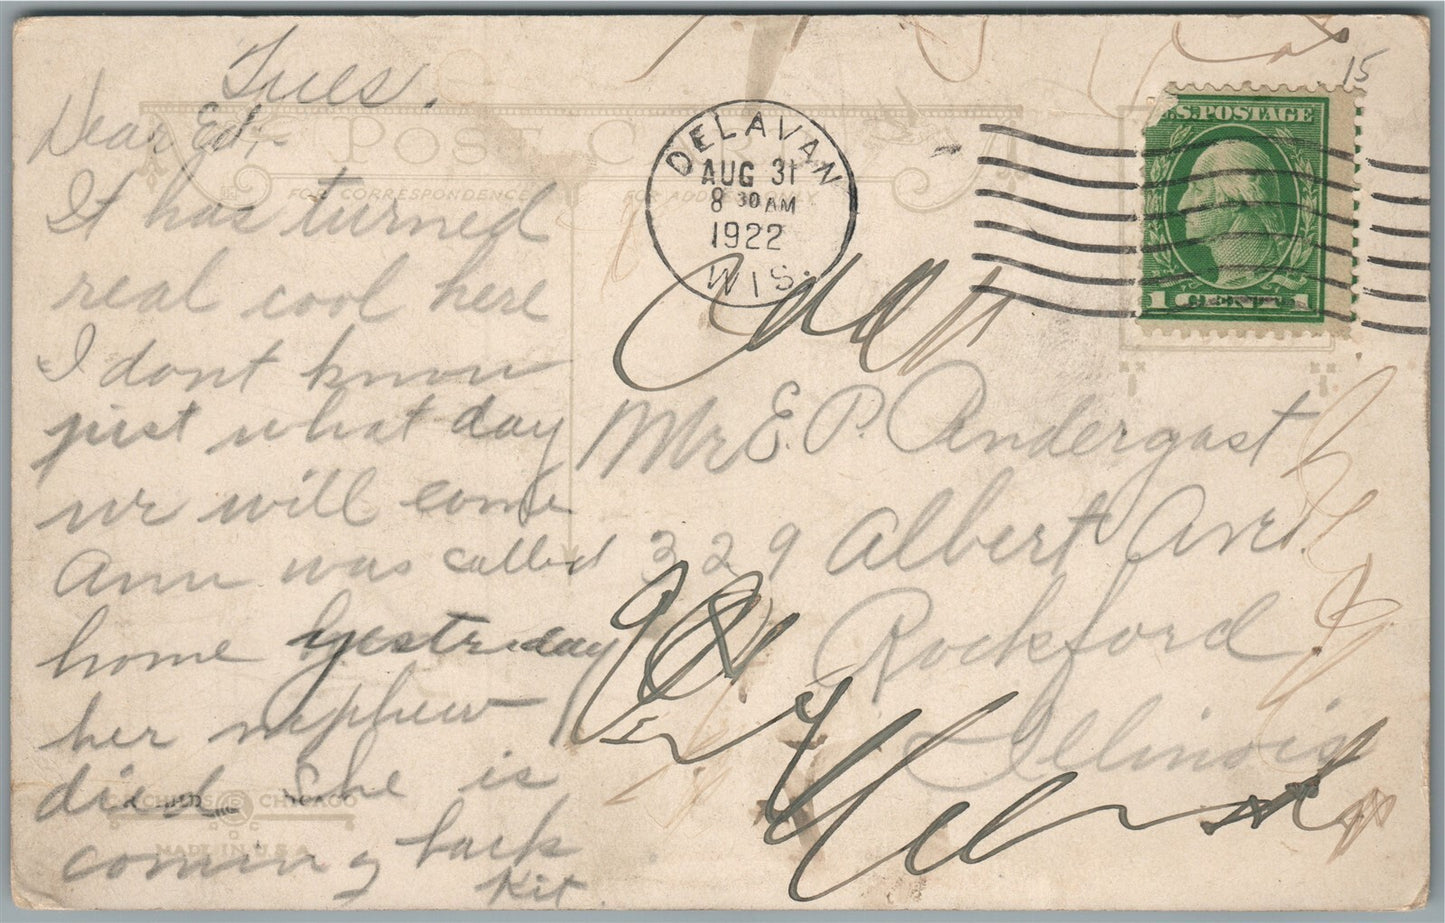 Tues.
Dear Ed,-
It has turned
real cool here
I dont know
just what day
we will come
Ann was called
home yesterday
her nephew
died She is
coming back
Kit
POST C
FOR CORRESPONDENCE
FOR ADDRESS ONLY
DELAVAN
AUG 31
8 30 AM
1922
WIS.
U.S.POSTAGE
1 CENT 1
15
Mr E. P. Pendergast
329 Albert Ave.
Rockford
Illinois
CHILDS CHICAGO
MADE IN U.S.A